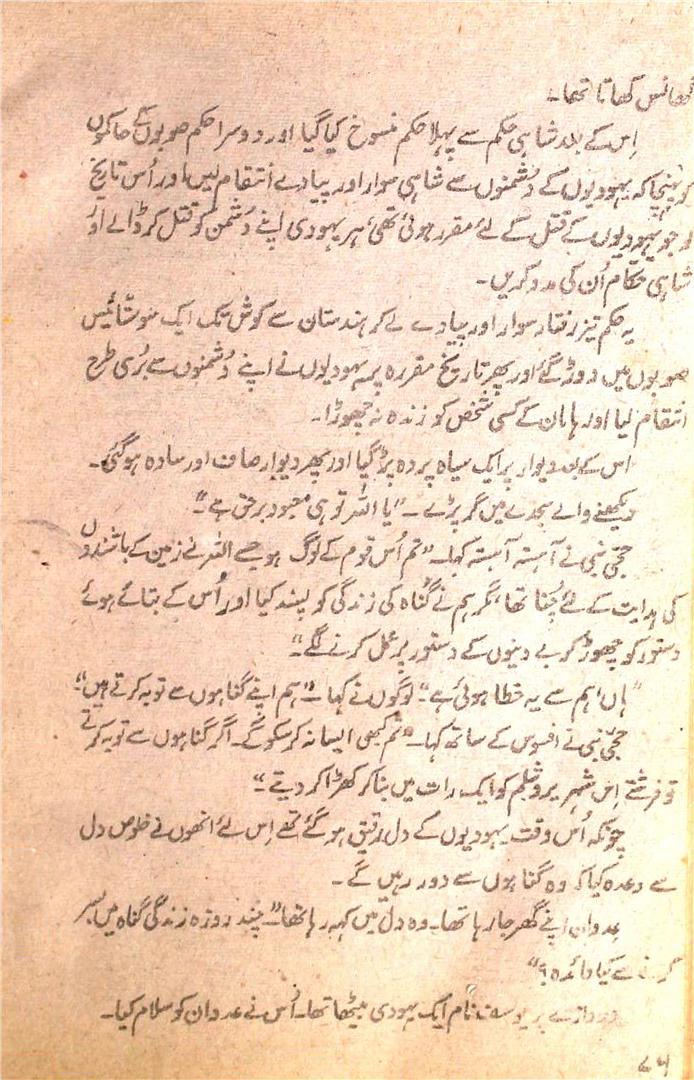 کھاتا تھا۔
اِس کے بعد شاہی حکم سے پہلا حکم منسوخ کیا گیا اور دوسرا حکم صوبوں کے حاکموں
کو پہنچا کہ یہودیوں کے دُشمنوں سے شاہی سوار اور پیادے انتقام لیں اور اُس تاریخ
کو جو یہودیوں کے قتل کے لئے مقرر ہوئی تھی، ہر یہودی اپنے دُشمن کو قتل کر ڈالے اور
شاہی حکام اُن کی مدد کریں۔
یہ حکم تیز رفتار سوار اور پیادے لے کر ہندستان سے کوش تک ایک سو ستائیس
صوبوں میں دوڑ گئے اور پھر تاریخ مقررہ پر یہودیوں نے اپنے دُشمنوں سے بُری طرح
انتقام لیا اور ہامان کے کسی شخص کو زندہ نہ چھوڑا۔
اس کے بعد دیوار پر ایک سیاہ پردہ پڑ گیا اور پھر دیوار صاف اور سادہ ہو گئی۔
دیکھنے والے سجدے میں گر پڑے۔ "یا اللہ تو ہی معبود برحق ہے"۔
حجّی نبی نے آہستہ آہستہ کہا۔ "تم اُس قوم کے لوگ ہو جسے اللہ نے زمین کے باشندوں
کی ہدایت کے لئے چُنا تھا، مگر ہم نے گناہ کی زندگی کو پسند کیا اور اُس کے بتائے ہوئے
دستور کو چھوڑ کر بے دینوں کے دستور پر عمل کرنے لگے۔"
"ہاں، ہم سے یہ خطا ہوئی ہے" لوگوں نے کہا۔ "ہم اپنے گناہوں سے توبہ کرتے ہیں۔"
حجّی نبی نے افسوس کے ساتھ کہا۔ "تم کبھی ایسا نہ کر سکو گے۔ اگر گناہوں سے توبہ کرتے
تو فرشتے اِس شہر یروشلم کو ایک رات میں بنا کر کھڑا کر دیتے۔"
چونکہ اُس وقت یہودیوں کے دل رقیق ہو گئے تھے اِس لئے انھوں نے خلوص دل
سے وعدہ کیا کہ وہ گناہوں سے دور رہیں گے۔
عدوان اپنے گھر جا رہا تھا۔ وہ دل میں کہہ رہا تھا "چند روزہ زندگی گناہ میں بسر
کرنے سے کیا فائدہ؟"
دروازے پر یوسف نام ایک یہودی بیٹھا تھا۔ اُس نے عدوان کو سلام کیا۔